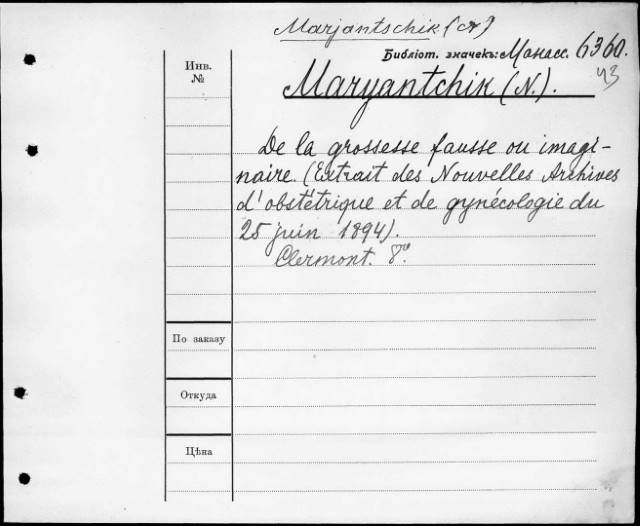 Marjantschik (N)
Библіот. значекъ: Манасс. 6360.
43
Инв.
№
Maryantchik (N.).
De la grossesse fausse ou imagi-
naire. (Extrait des Nouvelles Archives
d'obstétrique et de gynécologie du
25 juin 1894).
Clermont. 8º.
По заказу
Откуда
Цѣна